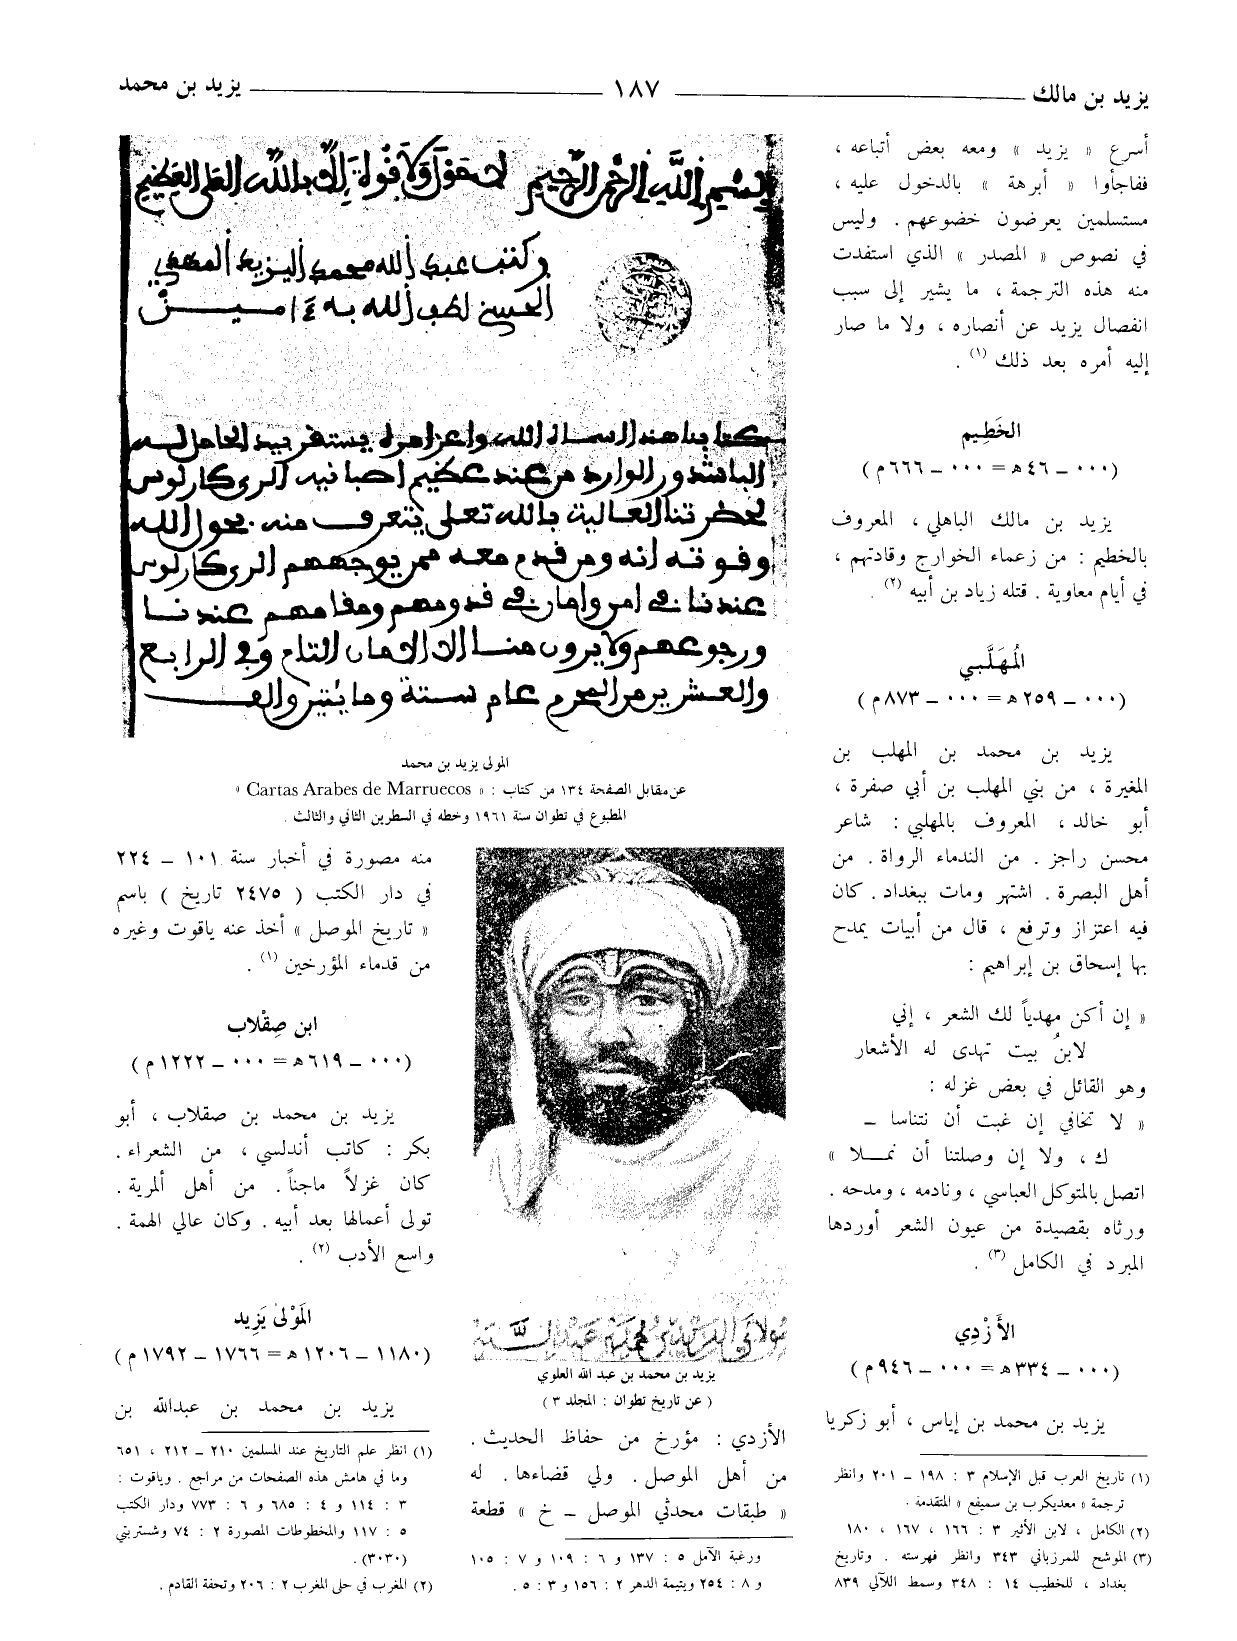 يزيد بن مالك
١٨٧
يزيد بن محمد
أسرع « يزيد » ومعه بعض أتباعه ،
ففاجأوا « أبرهة » بالدخول عليه ،
مستسلمين يعرضون خضوعهم . وليس
في نصوص « المصدر » الذي استفدت
منه هذه الترجمة ، ما يشير إلى سبب
انفصال يزيد عن أنصاره ، ولا ما صار
إليه أمره بعد ذلك (١) .
الخَطِيم
(٠٠٠ – ٤٦ ه = ٠٠٠ – ٦٦٦ م)
يزيد بن مالك الباهلي ، المعروف
بالخطيم : من زعماء الخوارج وقادتهم ،
في أيام معاوية . قتله زياد بن أبيه (٢) .
المُهَلَّبي
(٠٠٠ – ٢٥٩ ه = ٠٠٠ – ٨٧٣ م)
يزيد بن محمد بن المهلب بن
المغيرة ، من بني المهلب بن أبي صفرة ،
أبو خالد ، المعروف بالمهلبي : شاعر
محسن راجز . من الندماء الرواة . من
أهل البصرة . اشتهر ومات ببغداد . كان
فيه اعتزاز وترفع ، قال من أبيات يمدح
بها إسحاق بن إبراهيم :
« إن أكن مهدياً لك الشعر ، إني
لابنُ بيت تهدى له الأشعار
وهو القائل في بعض غزله :
« لا تخافي إن غبت أن نتناسا –
ك ، ولا إن وصلتنا أن نمـلا »
اتصل بالمتوكل العباسي ، ونادمه ، ومدحه .
ورثاه بقصيدة من عيون الشعر أوردها
المبرد في الكامل (٣) .
الأَزْدِي
(٠٠٠ – ٣٣٤ ه = ٠٠٠ – ٩٤٦ م)
يزيد بن محمد بن إياس ، أبو زكريا
(١) تاريخ العرب قبل الإسلام ٣ : ١٩٨ – ٢٠١ وانظر
ترجمة « معديكرب بن سميفع » المتقدمة .
(٢) الكامل ، لابن الأثير ٣ : ١٦٦ ، ١٦٧ ، ١٨٠
(٣) الموشح للمرزباني ٣٤٣ وانظر فهرسته . وتاريخ
بغداد ، للخطيب ١٤ : ٣٤٨ وسمط اللآلي ٨٣٩
بسم الله الرحمن الرحيم لا حول ولا قوة إلا بالله العلي العظيم
وكتب عبد الله محمد اليزيد المهدي
الحسني لطف الله به ءامين
كتابنا هذا أسماه الله وأعز أمره يستقر بيد الحامل له
الباشدور الوارد من عند عظيم اصبانيه الري كارلوس
لحضرتنا العالية بالله تعلى يتعرف منه بحول الله
وقوته أنه ومن قدم معه ممن يوجههم الري كارلوس
عندنا في أمن وأمان في قدومهم ومقامهم عندنا
ورجوعهم ولا يرون منا إلا الامان التام وفي الرابع
والعشرين من المحرم عام ستة ومايتين والف
المولى يزيد بن محمد
عن مقابل الصفحة ١٣٤ من كتاب : « Cartas Arabes de Marruecos »
المطبوع في تطوان سنة ١٩٦١ وخطه في السطرين الثاني والثالث .
مولاي اليزيد بن محمد بن عبد الله
يزيد بن محمد بن عبد الله العلوي
( عن تاريخ تطوان : المجلد ٣ )
الأزدي : مؤرخ من حفاظ الحديث .
من أهل الموصل . ولي قضاءها . له
« طبقات محدثي الموصل – خ » قطعة
ورغبة الآمل ٥ : ١٣٧ و ٦ : ١٠٩ و ٧ : ١٠٥
و ٨ : ٢٥٤ ويتيمة الدهر ٢ : ١٥٦ و ٣ : ٥ .
منه مصورة في أخبار سنة ١٠١ – ٢٢٤
في دار الكتب ( ٢٤٧٥ تاريخ ) باسم
« تاريخ الموصل » أخذ عنه ياقوت وغيره
من قدماء المؤرخين (١) .
ابن صِقْلاب
(٠٠٠ – ٦١٩ ه = ٠٠٠ – ١٢٢٢ م)
يزيد بن محمد بن صقلاب ، أبو
بكر : كاتب أندلسي ، من الشعراء .
كان غزلاً ماجناً . من أهل ألمرية .
تولى أعمالها بعد أبيه . وكان عالي الهمة .
واسع الأدب (٢) .
المَوْلىٰ يَزِيد
(١١٨٠ – ١٢٠٦ ه = ١٧٦٦ – ١٧٩٢ م)
يزيد بن محمد بن عبدالله بن
(١) انظر علم التاريخ عند المسلمين ٢١٠ – ٢١٢ ، ٦٥١
وما في هامش هذه الصفحات من مراجع . وياقوت :
٣ : ١١٤ و ٤ : ٦٨٥ و ٦ : ٧٧٣ ودار الكتب
٥ : ١١٧ والمخطوطات المصورة ٢ : ٧٤ وشستربتي
(٣٠٣٠) .
(٢) المغرب في حلى المغرب ٢ : ٢٠٦ وتحفة القادم .